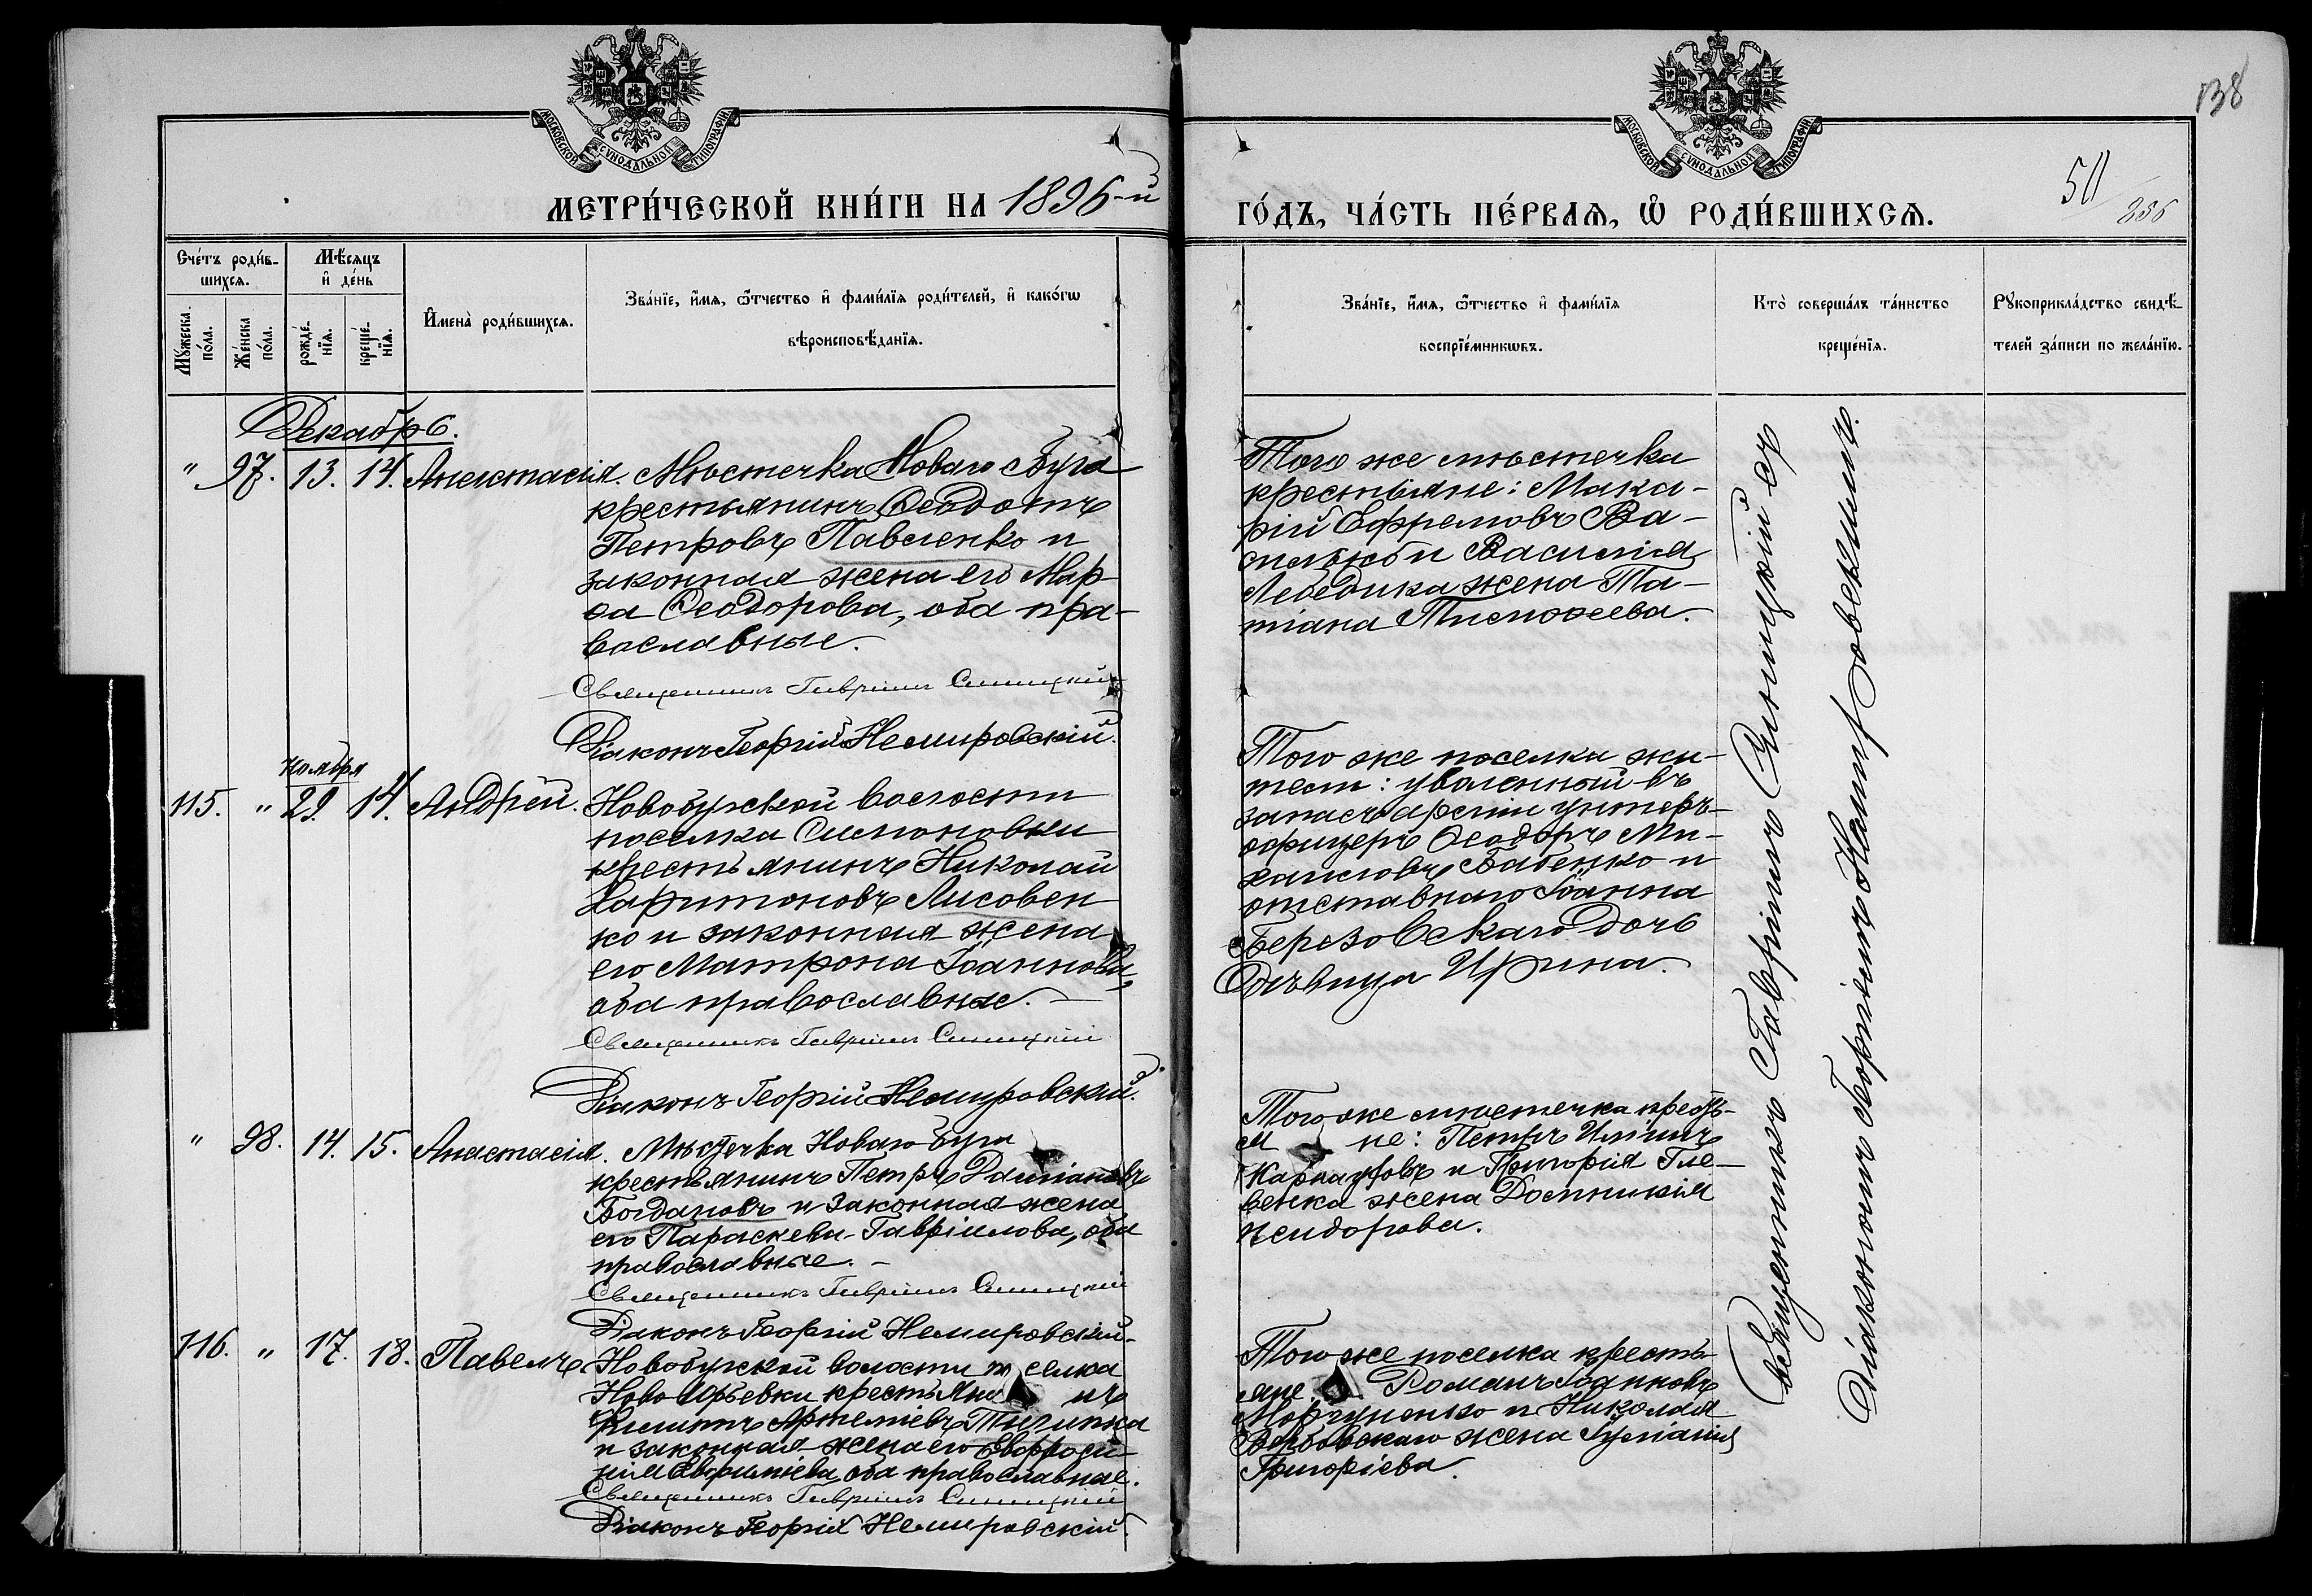 138
МОСКОВСКОЙ СУНОДАЛЬНОЙ ТИПОГРАФІИ
МОСКОВСКОЙ СУНОДАЛЬНОЙ ТИПОГРАФІИ
МЕТРИ́ЧЕСКОЙ КНИ́ГИ НА 1896-й
ГО́ДЪ, ЧА́СТЬ ПЕ́РВАЯ, Ѽ РОДИ́ВШИХСЯ.
Сче́тъ роди́в-
шихся.
Мѣ́сяцъ
и҆ де́нь
Мꙋ́жеска по́ла.
Же́нска по́ла.
рожде́-
нїя.
креще́-
нїя.
И҆мена̀ роди́вшихся.
Зва́нїе, и҆́мя, ѻ҆́тчество и҆ фами́лїя роди́телей, и҆ како́гѡ
вѣроисповѣ́данїя.
Зва́нїе, и҆́мя, ѻ҆́тчество и҆ фами́лїя
воспрїе́мникѡвъ.
Кто̀ соверша́лъ та́инство
креще́нїя.
Рꙋкоприкла́дство свидѣ́-
телей за́писи по жела́нїю.
Декабрь.
" 97. 13. 14. Анастасія.
Мѣстечка Новаго Буга
крестьянинъ Ѳеодотъ
Петровъ Павленко и
законная жена его Мар-
ѳа Ѳеодорова, оба пра-
вославные.
Священникъ Гавріилъ Синицкій
Діаконъ Георгій Немировскій.
Того же мѣстечка
крестьяне: Мака-
рій Ефремовъ Ва-
сько и Василія
Лебедика жена Та-
тіана Тимоѳеева.
Ноября
115. " 29. 14. Андрей.
Новобугской волости
поселка Симоновки
крестьянинъ Николай
Харитоновъ Лисовен
ко и законная жена
его Матрона Іоаннова,
оба православные.
Священникъ Гавріилъ Синицкій
Діаконъ Георгій Немировскій.
Того же поселка жи-
тели: уволенный въ
запасъ арміи унтеръ-
офицеръ Ѳеодоръ Ми-
хаиловъ Бабенко и
отставнаго Іоанна
Березовскаго дочь
дѣвица Ирина.
" 98. 14. 15. Анастасія.
Мѣстечка Новаго Буга
крестьянинъ Петръ Даміановъ
Богдановъ и законная жена
его Параскева Гавріилова, оба
православные.
Священникъ Гавріилъ Синицкій
Діаконъ Георгій Немировскій.
Того же мѣстечка кресть-
я не: Петръ Иліинъ
и Григорія Гле-
венка жена Домникія
Исидорова.
116. " 17. 18. Павелъ
Новобугской волости по селка
Ново Юрьевки крестьяни нъ
Филиппъ Артеміевъ
и законная жена его Евфроси-
нія оба православные.
Священникъ Гавріилъ Синицкій
Діаконъ Георгій Немировскій.
Того же поселка кресть-
яне: Романъ Іоанновъ
Моргуненко и Николая
Вербовскаго жена Іуліанія
Григоріева.
Священникъ Гавріилъ Синицкій съ
Діакономъ Георгіемъ